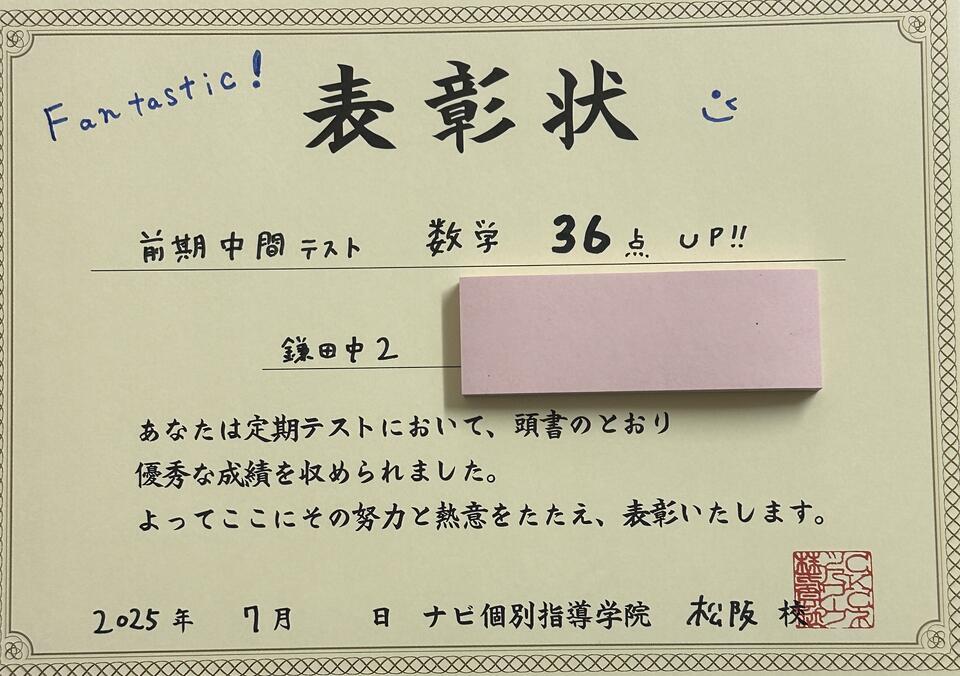 Fantastic!
表彰状
前期中間テスト 数学 36点 UP!!
鎌田中2
あなたは定期テストにおいて、頭書のとおり
優秀な成績を収められました。
よってここにその努力と熱意をたたえ、表彰いたします。
2025年 7月 日 ナビ個別指導学院 松阪 校